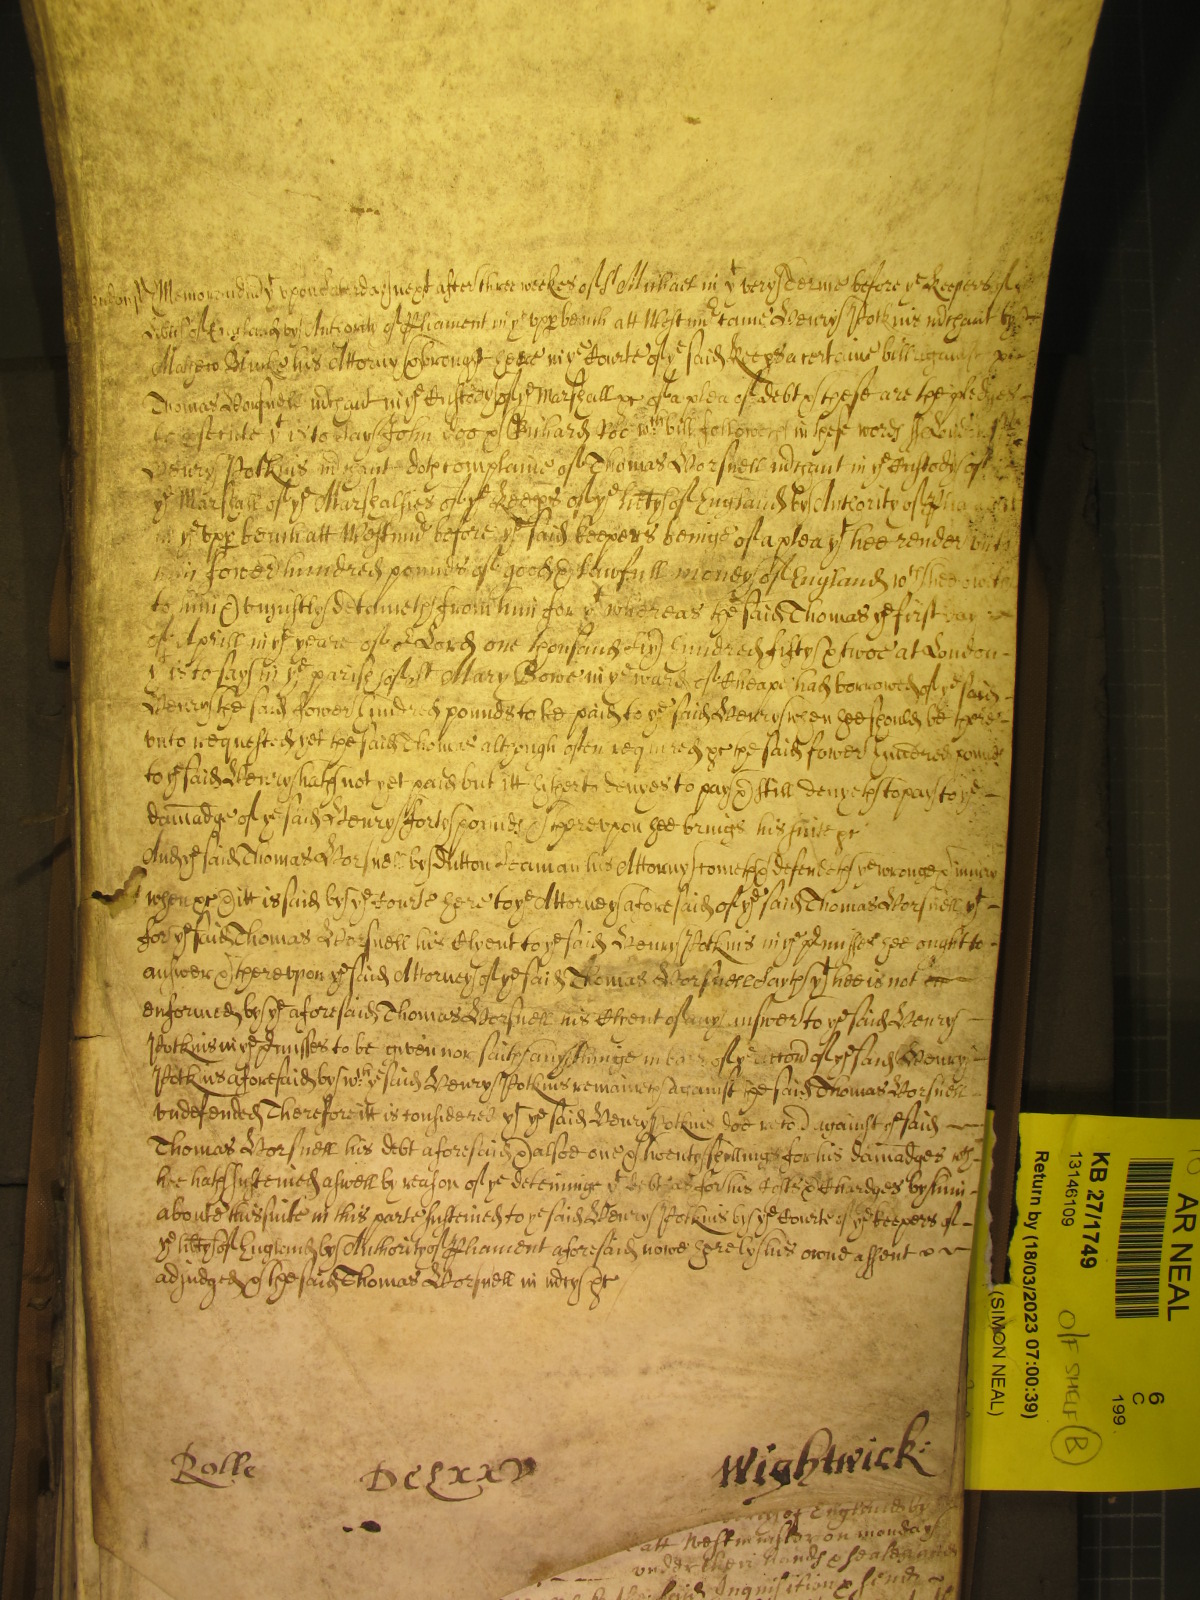 Memorand yt upon Saterday next after three weekes of St Michaell in ys very Terme before ye Keepers of ye
Libtie of England by Authority of Parliament in ye upp bench att Westmr came Henry Potkins mchant by
Mathew Blucke his Attorny & brought here in ye Courte of ye said Keeps a certaine bill against
Thomas Worsnell mchant in ye Custody of ye Marshall &c of a plea of debt & these are the pledges
to prosecute yt is to say John Doo & Richard Roe wch bill followeth in these words ss London ss
Henry Potkins mchant doth complaine of Thomas Worsnell mchant in ye Custody of
ye Marshall of ye Marshallsies of ye Keeps of ye libtys of England by Authority of
in ye upp bench att Westmr before ye said keepers beinge of a plea yt hee render unto
him fower hundred pounds of good & lawfull money of England wch hee oweth
to him & unjustly detaineth from him for yt whereas the said Thomas ye first day
of Aprill in ye yeare of or Lord one thousand six hundred fifty & twoe at London
yt is to say in ye parish of St Mary Bowe in ye ward of Cheape had borrowed of ye said
Henry the said fower hundred pounds to be paid to ye said Henry when hee should be there
unto requested yet the said Thomas although often required &c the said fower hundred pounds
to ye said Henry hath not yet paid but itt hitherto denyes to pay & still denyeth to pay to ye
damadge of ye said Henry forty pounds & thereupon hee brings his suite &c
And ye said Thomas Worsnell by Dutton Seaman his Attorny cometh & defendeth ye wronge & iniury
when &c & itt is said by ye Courte here to ye Attorney aforesaid of ye said Thomas Worsnell yt
for ye said Thomas Worsnell his Clyent to ye said Henry Potkins in ye Pmisses hee ought to
answer & thereupon ye said Attorney of ye said Thomas Worsnell sayth yt hee is not
enformed by ye aforesaid Thomas Worsnell his Clyent of any answer to ye said Henry
Potkins in ye Pmisses to be given nor saith any thinge in barr of ye accion of ye said Henry
Potkins aforesaid by wch ye said Henry Potkins remaineth against the said Thomas Worsnell
undefended Therefore itt is considered yt ye said Henry Potkins doe recod against ye said
Thomas Worsnell his debt aforesaid & alsoe one & twenty shillings for his damadges wch
hee hath susteined aswell by reason of ye deteininge ye debt as for his Costs & Chardges by him
aboute his suite in this parte susteined to ye said Henry Potkins by ye Courte of ye Keepers of
ye libtys of England by Authority of Parliament aforesaid nowe here by his owne assent
adjudged & the said Thomas Worsnell in mcy &c
Rolle DCLXXV Wightwick
of England by
att Westminster on monday
under their hands & seales
the said Inquisition &
AR NEAL
6
C
199.
KB 27/1749
13146109
O/F SHELF B
Return by (18/03/2023 07:00:39)
(SIMON NEAL)